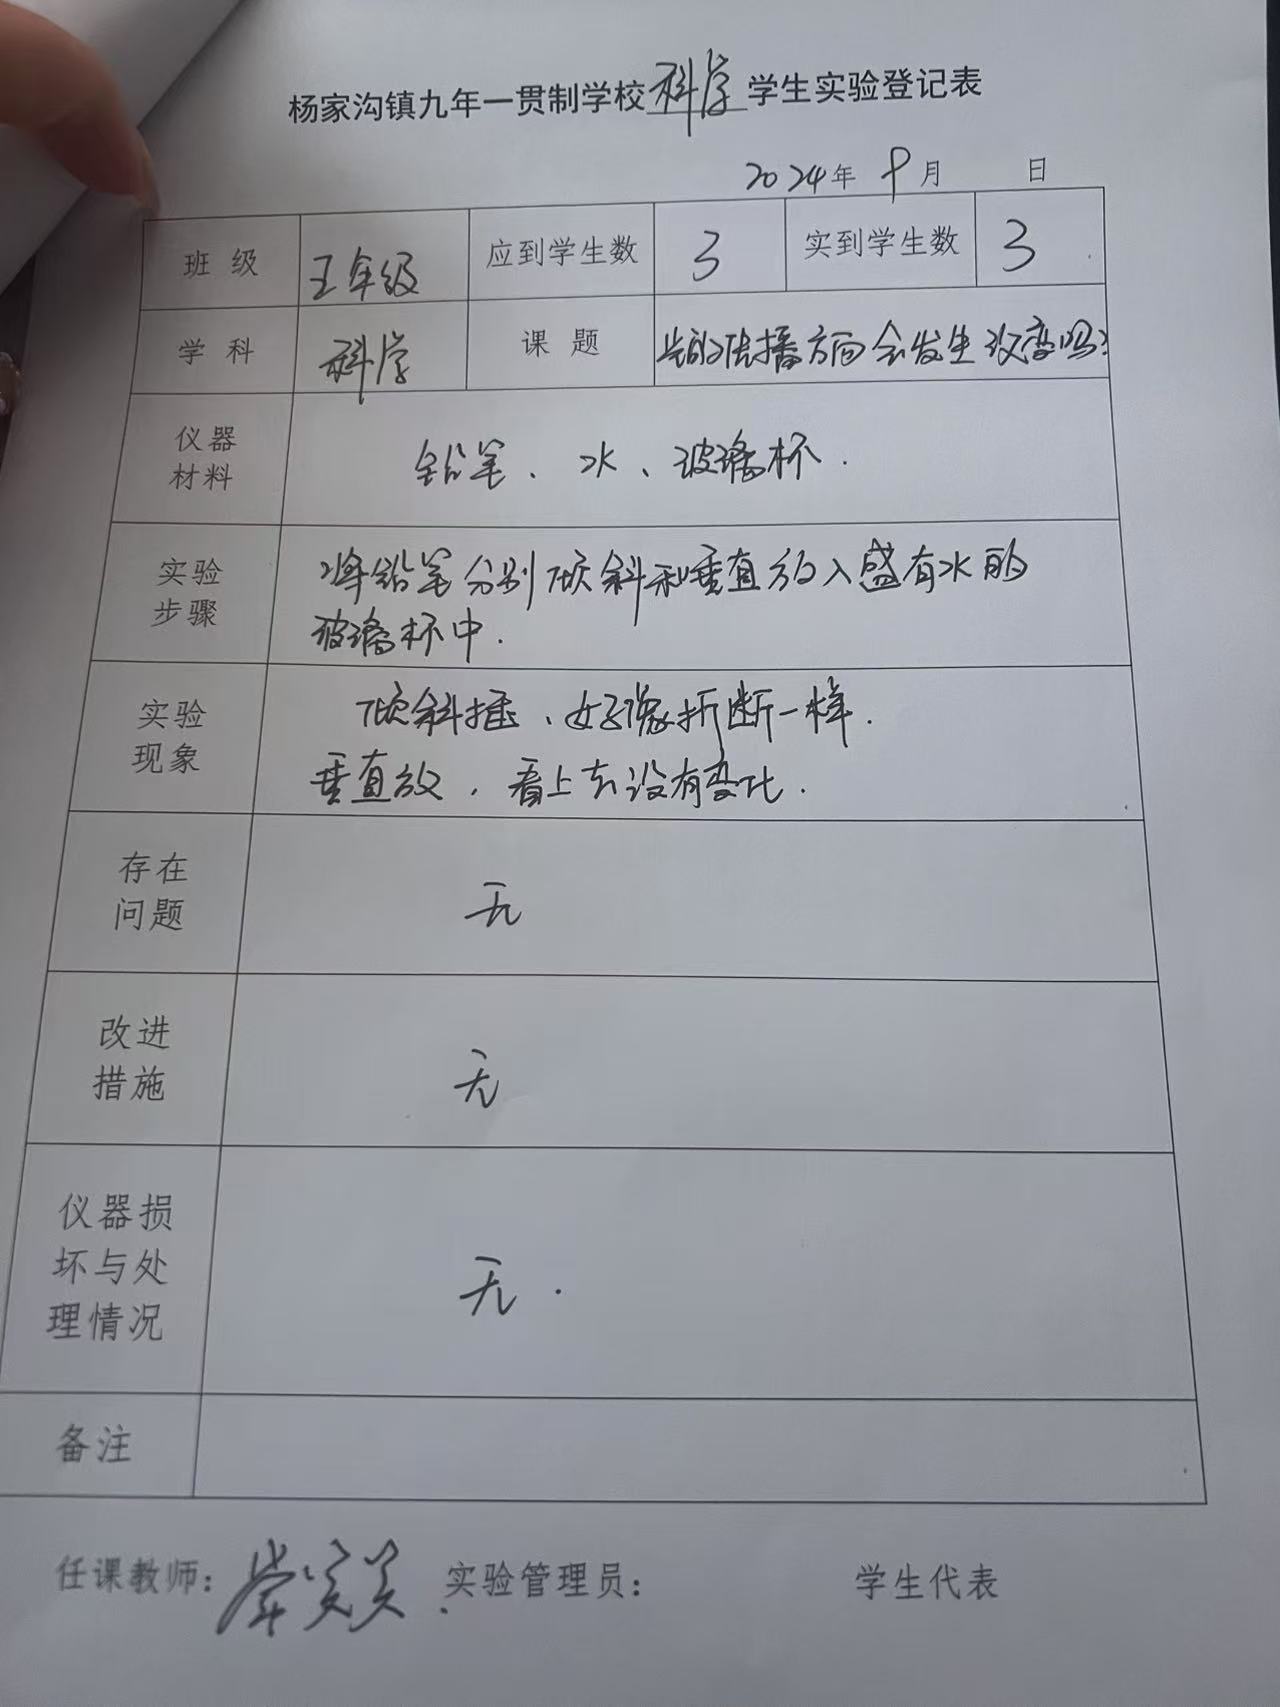 杨家沟镇九年一贯制学校科学学生实验登记表
2024年 9月 日
班 级 五年级 应到学生数 3 实到学生数 3
学 科 科学 课 题 光的传播方向会发生改变吗?
仪器
材料
铅笔、水、玻璃杯.
实验
步骤
将铅笔分别倾斜和垂直放入盛有水的
玻璃杯中.
实验
现象
倾斜插、好像折断一样.
垂直放，看上去没有变化.
存在
问题
无
改进
措施
无
仪器损
坏与处
理情况
无.
备注
任课教师: 实验管理员: 学生代表